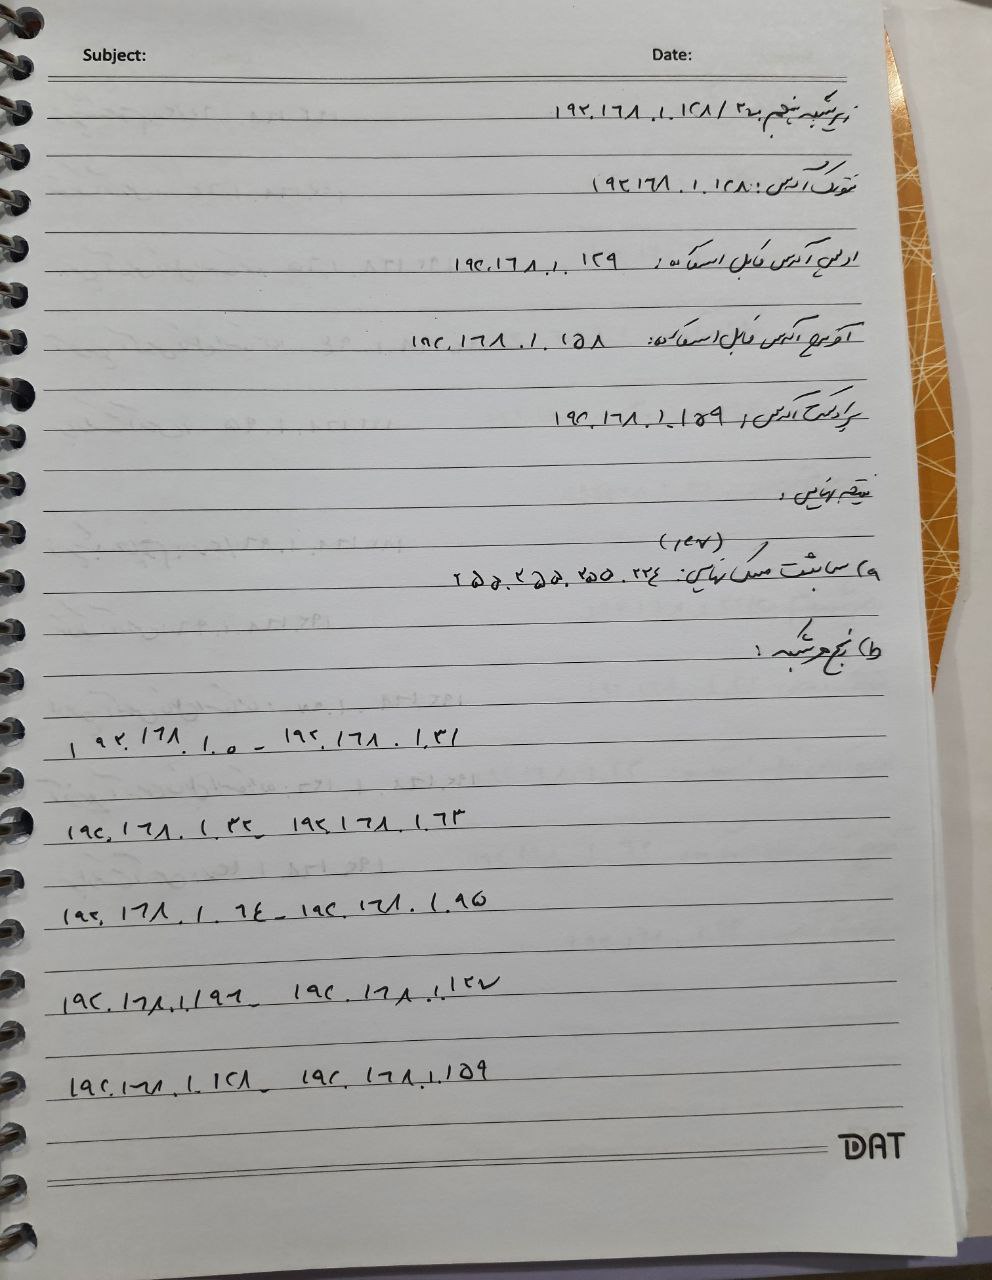 Subject: Date:
زیرشبکه پنجم: ۱۹۲.۱۶۸.۱.۱۲۸/۲۷
نتورک آدرس: ۱۹۲.۱۶۸.۱.۱۲۸
اولین آدرس قابل استفاده: ۱۹۲.۱۶۸.۱.۱۲۹
آخرین آدرس قابل استفاده: ۱۹۲.۱۶۸.۱.۱۵۸
برادکست آدرس: ۱۹۲.۱۶۸.۱.۱۵۹
نتیجه نهایی:
(۲۷/)
a) سابنت مسک نهایی: ۲۵۵.۲۵۵.۲۵۵.۲۲۴
b) پنج زیرشبکه:
۱۹۲.۱۶۸.۱.۰ - ۱۹۲.۱۶۸.۱.۳۱
۱۹۲.۱۶۸.۱.۳۲ - ۱۹۲.۱۶۸.۱.۶۳
۱۹۲.۱۶۸.۱.۶۴ - ۱۹۲.۱۶۸.۱.۹۵
۱۹۲.۱۶۸.۱.۱۹۶ - ۱۹۲.۱۶۸.۱.۱۲۷
۱۹۲.۱۶۸.۱.۱۲۸ - ۱۹۲.۱۶۸.۱.۱۵۹
DAT